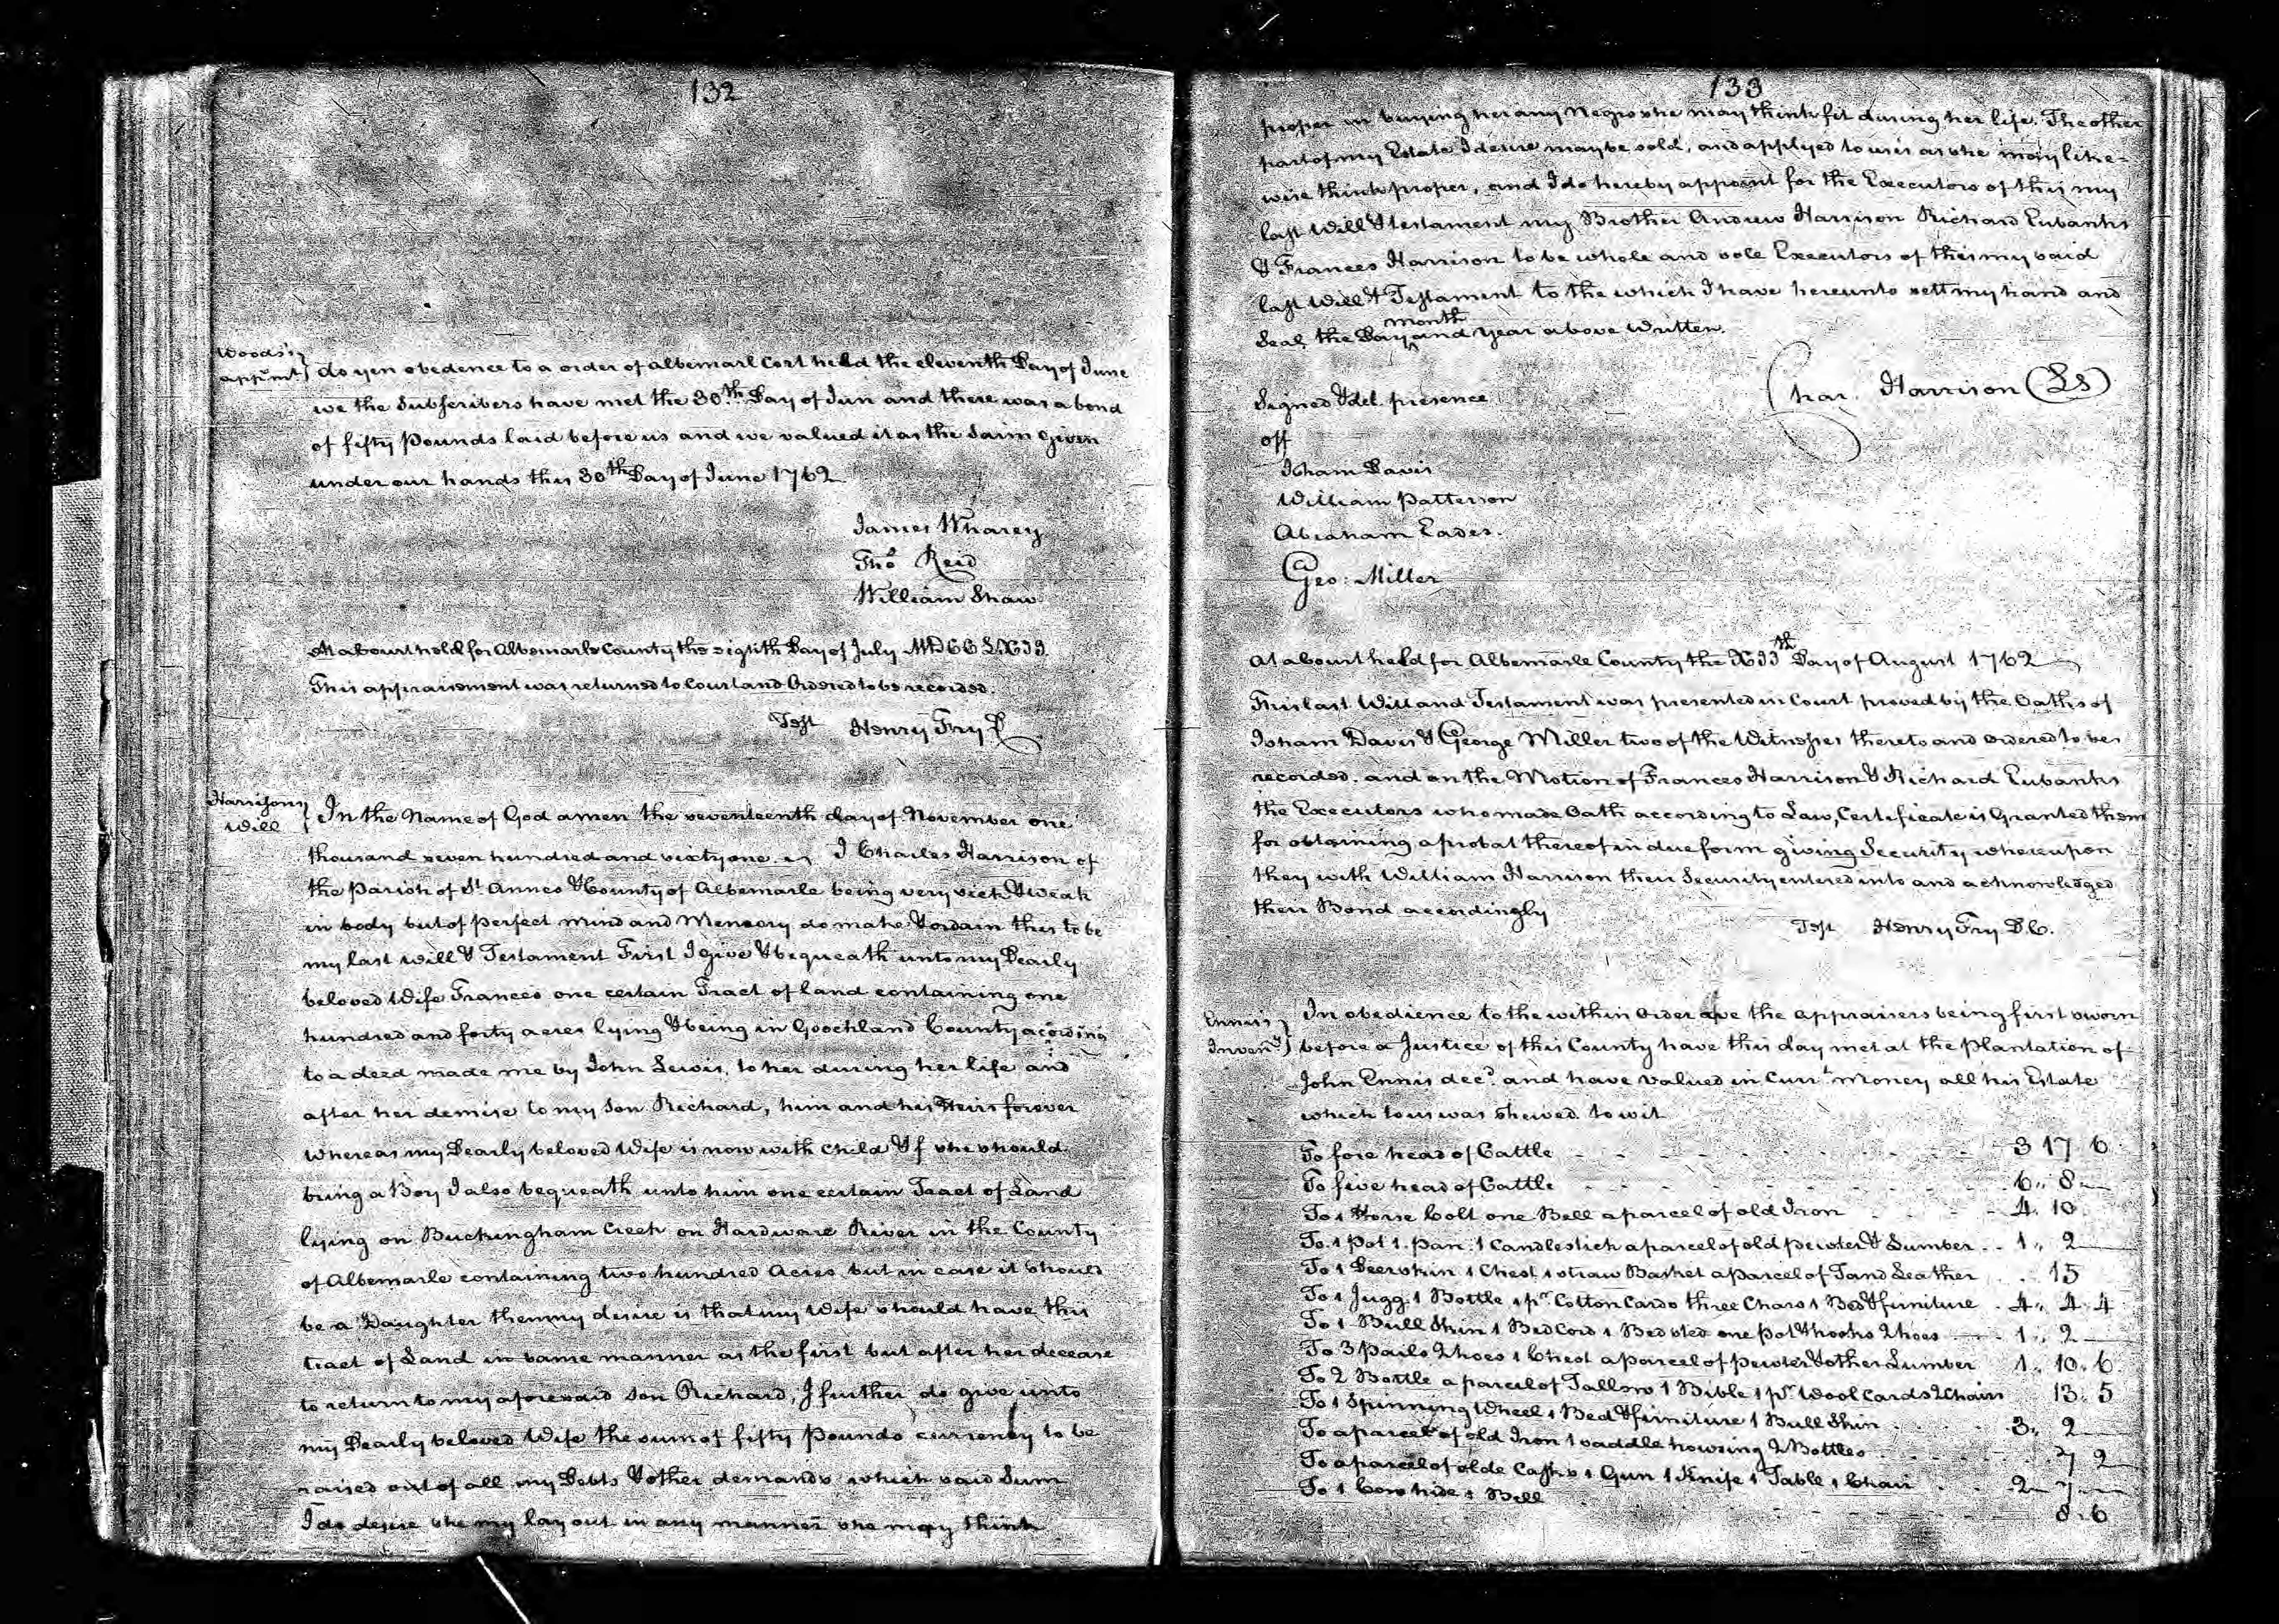 132
Woods's
appmt
do yen obedence to a order of albemarl Cort held the eleventh Day of June
we the Subscribers have met the 30th Day of Jun and there was a bond
of fifty Pounds laid before us and we valued it as the Saim Given
under our hands this 30th Day of June 1762
James Wharey
Thos Reid
William Shaw
At a Court held for Albemarle County the eighth Day of July
This appraisement was returned to Court and Ordered to be recorded.
Test Henry Fry
Harrisons
Will
In the Name of God amen the seventeenth day of November one
thousand seven hundred and sixty one I Charles Harrison of
the Parish of St Annes & County of Albemarle being very sick & weak
in body but of perfect mind and Memory do make & ordain this to be
my last will & Testament First I give & bequeath unto my Dearly
beloved Wife Frances one certain Tract of land containing one
hundred and forty acres lying & being in Goochland County acording
to a deed made me by John Lewis, to her during her life and
after her demise to my Son Richard, him and his Heirs forever
Whereas my Dearly beloved Wife is now with Child & if she should
bring a Boy I also bequeath unto him one certain Tract of Land
lying on Buckingham Creek on Hardware River in the County
of Albemarle containing two hundred Acres but in case it should
be a Daughter then my desire is that my Wife should have this
tract of Land in same manner as the first but after her decease
to return to my aforesaid son Richard, I further do give unto
my Dearly beloved Wife the sum of fifty Pounds currency to be
raised out of all my Debts & other demands which said Sum
I do desire she my lay out in any manner she may think
133
proper in buying her any Negro she may think fit during her life. The other
part of my Estate I desire may be sold, and applyed to uses as she may like-
wise think proper, and I do hereby appoint for the Executors of this my
last Will & testament my Brother Andrew Harrison Richard Eubanks
& Frances Harrison to be whole and sole Executors of this my said
last Will & Testament to the which I have hereunto sett my hand and
month
Seal the Day and year above Written.
Signed & del. presence
Char. Harrison (LS)
off
Isham Davis
William Patterson
Abraham Eades.
Geo: Miller
At a Court held for Albemarle County the XIIth Day of August 1762
This last Will and Testament was presented in Court proved by the Oaths of
Isham Davis & George Miller two of the Witnesses thereto and ordered to be
recorded. and on the Motion of Frances Harrison & Richard Eubanks
the Executors who made Oath according to Law, Certificate is Granted them
for obtaining a probat thereof in due form giving Security whereupon
they with William Harrison their Security entered into and acknowledged
their Bond accordingly
Test Henry Fry D C.
Ennis's
Inventy
In obedience to the within Order We the appraisers being first sworn
before a Justice of this County have this day met at the Plantation of
John Ennis decd. and have valued in Currt money all his Estate
which to us was shewed to wit
To fore head of Cattle 3 17 6
To five head of Cattle 6 " 8 —
To 1 Horse Colt one Bell a parcel of old Iron 4. 10
To 1 Pot 1. Pan. 1 Candlestick a parcel of old pewter & Lumber 1 " 2 —
To 1 Deerskin 1 Chest 1 straw Basket a parcel of Tand Leather 15
To 1 Jugg. 1 Bottle 1 pr. Cotton Cards three Chars 1 Bed & furniture 4 " 4. 4
To 1 Bull Skin 1 Bed Cord 1 Bed sted one pot & hooks 2 hoes 1 " 2 —
To 3 pails 2 hoes 1 Chest a parcel of pewter & other Lumber 1. 10. 6
To 2 Bottle a parcel of Tallow 1 Bible 1 pr Wool Cards 2 Chairs 13. 5
To 1 Spinning Wheel 1 Bed & furniture 1 Bull Skin 3 " 2 —
To a parcel of old Iron 1 saddle howsing 2 Bottles 7 2
To a parcel of olde Casks 1 Gun 1 Knife 1 Table 1 Chair 2 — 7 —
To 1 Cow hide 1 Bell 8. 6